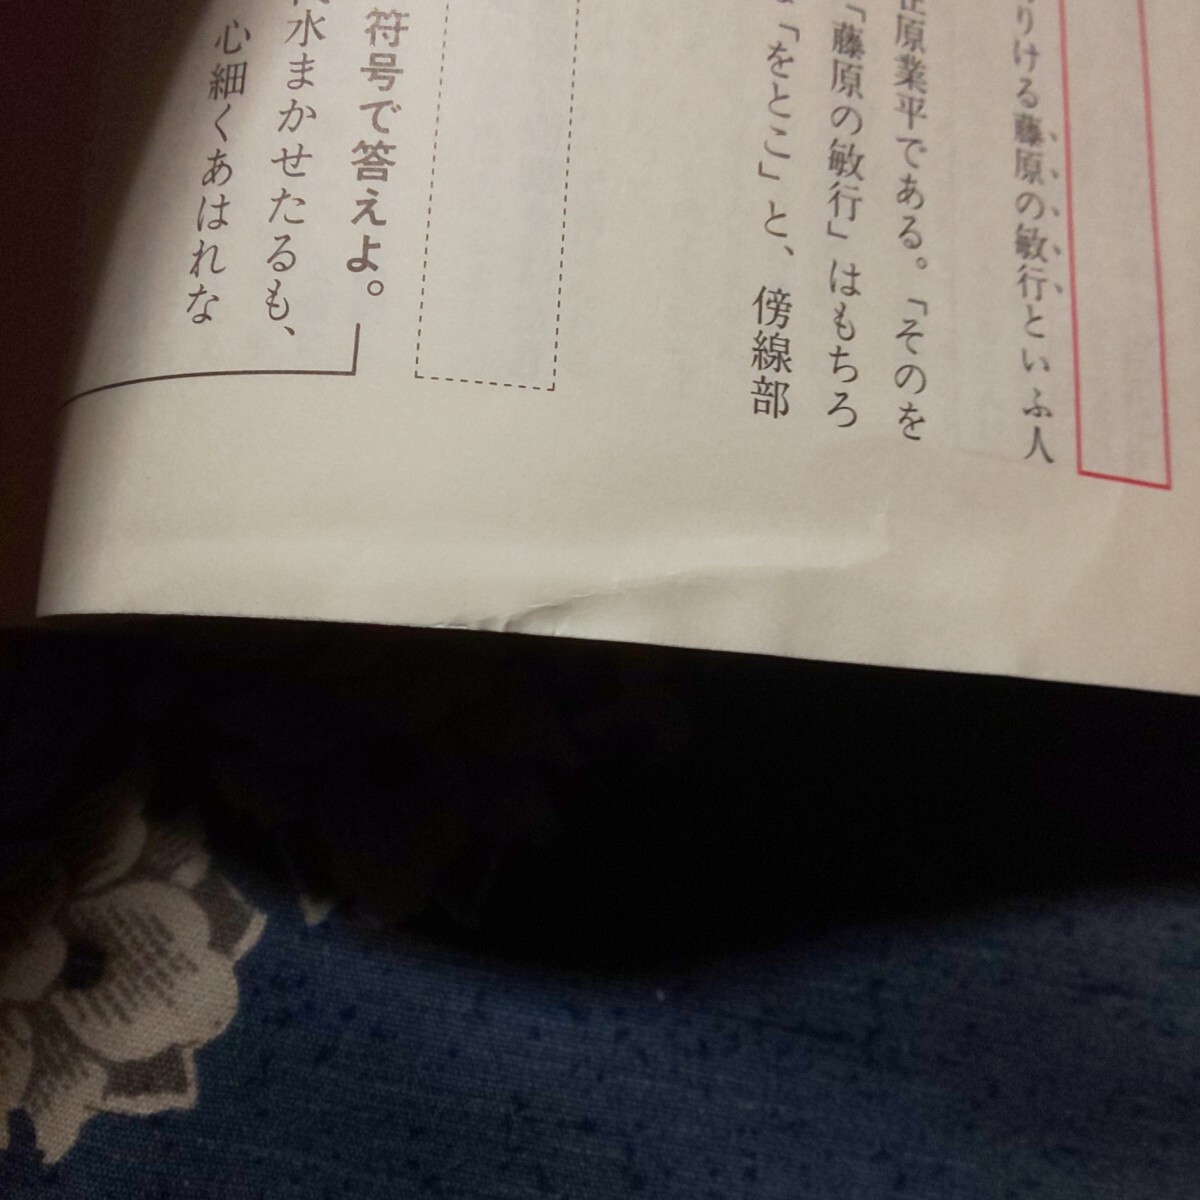 りける藤原の敏行といふ人
在原業平である。「そのを
「藤原の敏行」はもちろ
「をとこ」と、傍線部
符号で答えよ。
水まかせたるも、
心細くあはれな